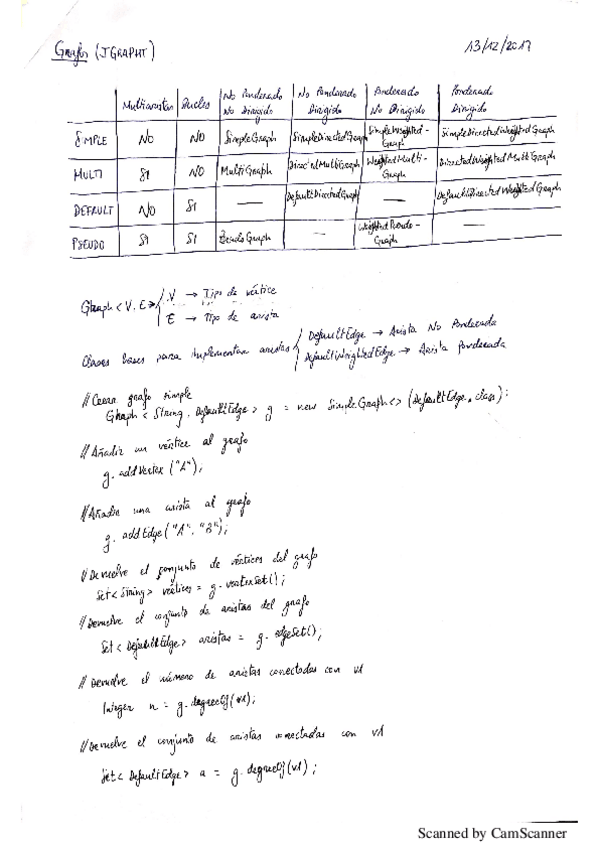 Grafos (JGRAPHT) 13/12/2017
Multiaristas Bucles No Ponderado No Dirigido No Ponderado Dirigido Ponderado No Dirigido Ponderado Dirigido
SIMPLE NO NO SimpleGraph SimpleDirectedGraph SimpleWeighted-Graph SimpleDirectedWeightedGraph
MULTI SI NO MultiGraph DirectedMultiGraph WeightedMulti-Graph DirectedWeightedMultiGraph
DEFAULT NO SI — DefaultDirectedGraph — DefaultDirectedWeightedGraph
PSEUDO SI SI PseudoGraph — WeightedPseudo-Graph —
Graph<V,E> V → Tipo de vértice
E → Tipo de arista
Clases bases para implementar aristas DefaultEdge → Arista No Ponderada
DefaultWeightedEdge → Arista ponderada
// Crear grafo simple
Graph<String, DefaultEdge> g = new SimpleGraph<>(DefaultEdge.class);
// Añadir un vértice al grafo
g.addVertex("A");
// Añadir una arista al grafo
g.addEdge("A","B");
// Devuelve el conjunto de vértices del grafo
Set<String> vértices = g.vertexSet();
// Devuelve el conjunto de aristas del grafo
Set<DefaultEdge> aristas = g.edgeSet();
// Devuelve el número de aristas conectadas con v1
Integer n = g.degreeOf(v1);
// Devuelve el conjunto de aristas conectadas con v1
Set<DefaultEdge> a = g.degreeOf(v1);
Scanned by CamScanner